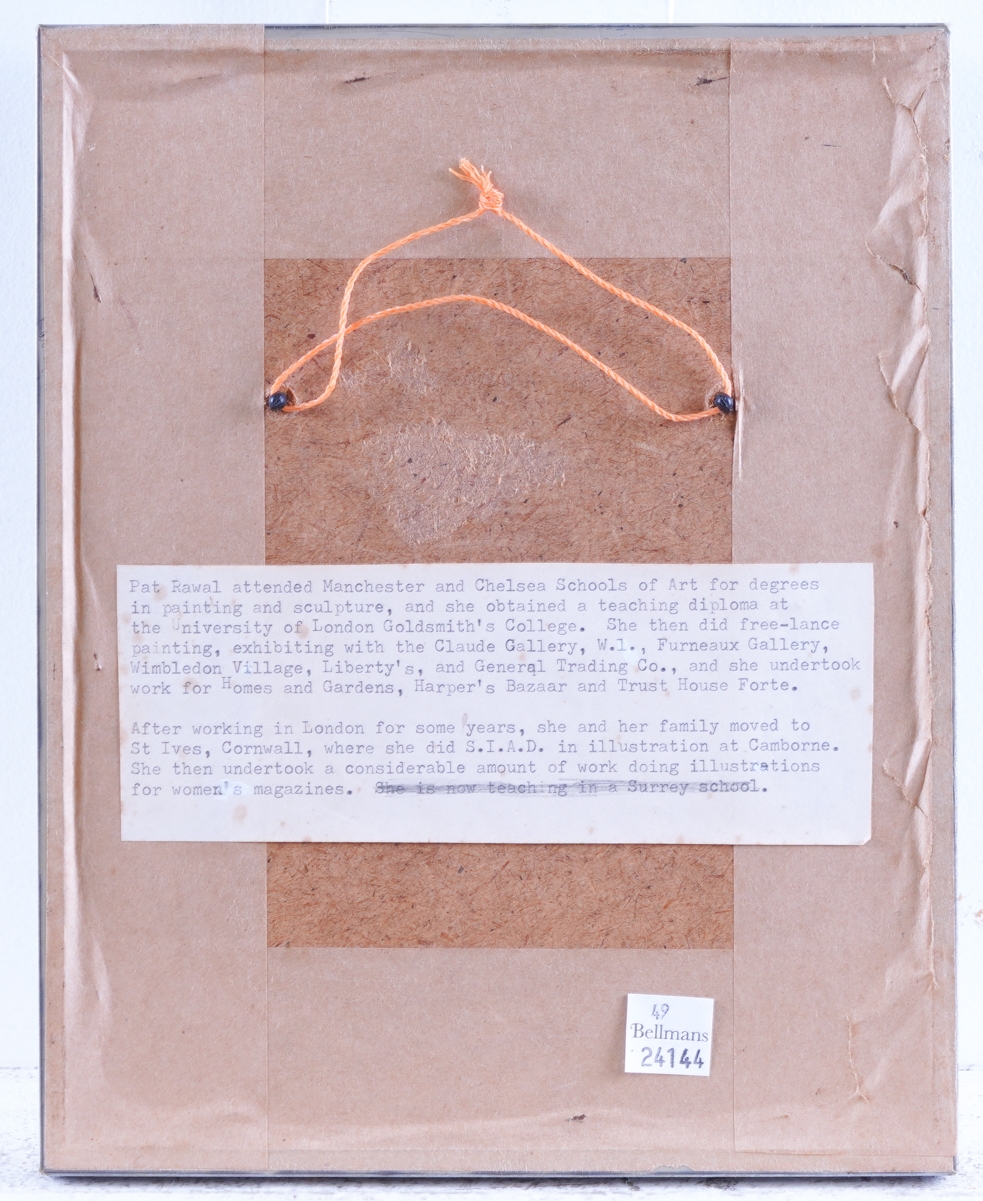 Pat Rawal attended Manchester and Chelsea Schools of Art for degrees
in painting and sculpture, and she obtained a teaching diploma at
the University of London Goldsmith's College. She then did free-lance
painting, exhibiting with the Claude Gallery, W.1., Furneaux Gallery,
Wimbledon Village, Liberty's, and General Trading Co., and she undertook
work for Homes and Gardens, Harper's Bazaar and Trust House Forte.
After working in London for some years, she and her family moved to
St Ives, Cornwall, where she did S.I.A.D. in illustration at Camborne.
She then undertook a considerable amount of work doing illustrations
for women's magazines. She is now teaching in a Surrey school.
49
Bellmans
24144